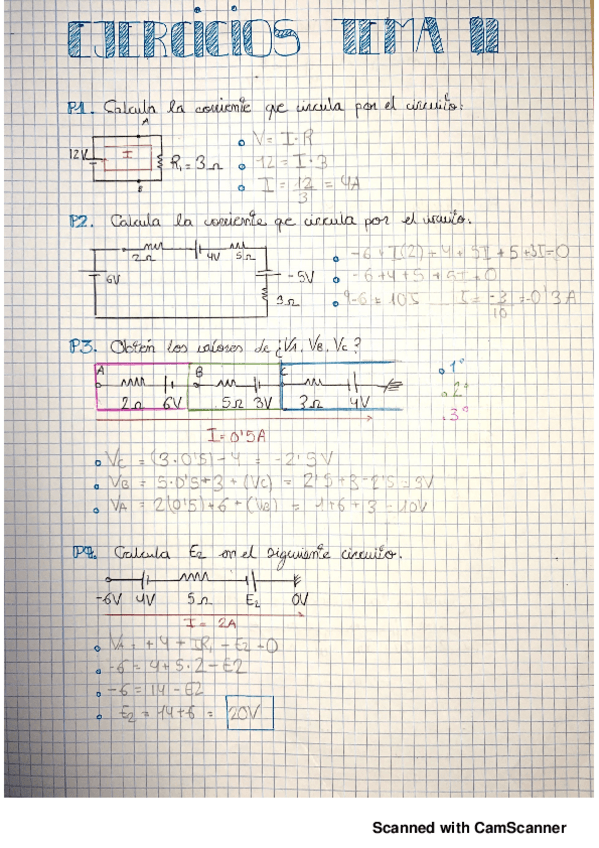 EJERCICIOS TEMA 11
P1. Calcula la corriente que circula por el circuito:
A
12V
I
R₁ = 3Ω
B
V = I·R
12 = I·3
I = 12/3 = 4A
P2. Calcula la corriente qe circula por el circuito.
2Ω 4V 5Ω
6V
-5V
3Ω
-6+I(2)+4+5I+5+3I=0
I = -3/10 = -0'3A
P3. Obtén los valores de ¿VA, VB, VC?
A B C
2Ω 6V 5Ω 3V 3Ω 4V
1º
2º
3º
I=0'5A
VC = (3·0'5)-4 = -2'5V
VB = 5·0'5+3+(VC) = 2'5+3-2'5=3V
VA = 2(0'5)+6+(VB) = 1+6+3=10V
P4. Calcula E2 en el siguiente circuito.
-6V 4V 5Ω E2 0V
I = 2A
-6 = 4+5·2-E2
-6 = 14-E2
E2 = 14+6 = 20V
Scanned with CamScanner